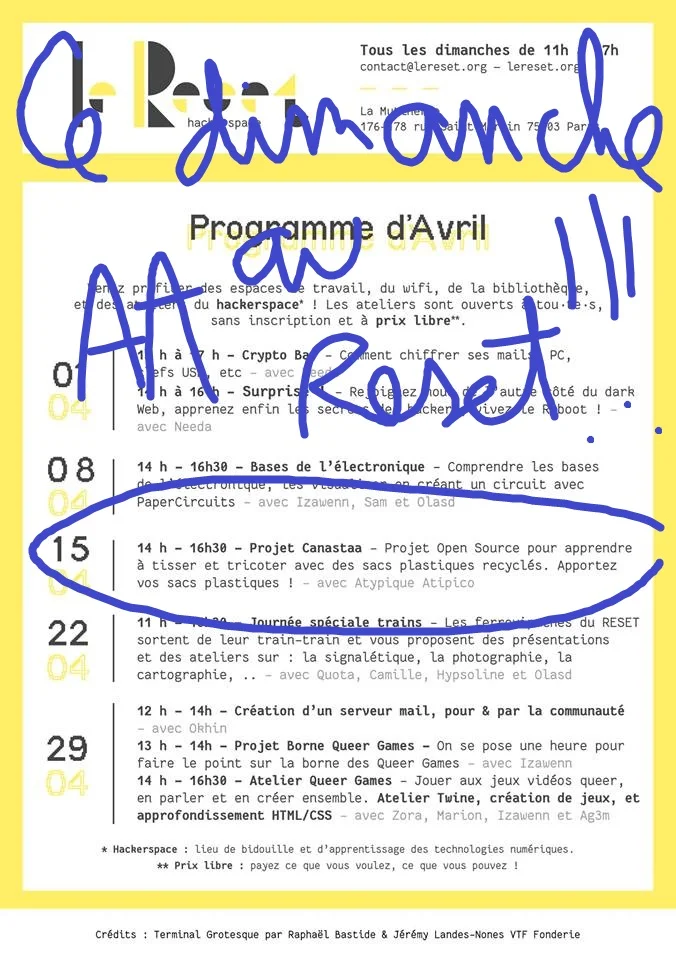 Le Reset
hackerspace
Tous les dimanches de 11h 17h
contact@lereset.org – lereset.org
La Mutinerie
176-178 rue Saint Martin 75003 Paris
Ce dimanche
AA au
Reset !!!
Programme d’Avril
Venez profiter des espaces de travail, du wifi, de la bibliothèque,
et des ateliers du hackerspace* ! Les ateliers sont ouverts à tou·te·s,
sans inscription et à prix libre**.
01
04
h à 17 h – Crypto Bar – Comment chiffrer ses mails, PC,
clefs USB, etc – avec Needa
14 h à 16 h – Surprise ! – Rejoignez-nous de l’autre côté du dark
Web, apprenez enfin les secrets des hackers, vivez le Reboot ! –
avec Needa
08
04
14 h – 16h30 – Bases de l’électronique – Comprendre les bases
de l’électronique, les visualiser en créant un circuit avec
PaperCircuits – avec Izawenn, Sam et Olasd
15
04
14 h – 16h30 – Projet Canastaa – Projet Open Source pour apprendre
à tisser et tricoter avec des sacs plastiques recyclés. Apportez
vos sacs plastiques ! – avec Atypique Atipico
22
04
11 h – 16h30 – Journée spéciale trains – Les ferrovipathes du RESET
sortent de leur train-train et vous proposent des présentations
et des ateliers sur : la signalétique, la photographie, la
cartographie, .. – avec Quota, Camille, Hypsoline et Olasd
29
04
12 h – 14h – Création d’un serveur mail, pour & par la communauté
– avec Okhin
13 h – 14h – Projet Borne Queer Games – On se pose une heure pour
faire le point sur la borne des Queer Games – avec Izawenn
14 h – 16h30 – Atelier Queer Games – Jouer aux jeux vidéos queer,
en parler et en créer ensemble. Atelier Twine, création de jeux, et
approfondissement HTML/CSS – avec Zora, Marion, Izawenn et Ag3m
* Hackerspace : lieu de bidouille et d’apprentissage des technologies numériques.
** Prix libre : payez ce que vous voulez, ce que vous pouvez !
Crédits : Terminal Grotesque par Raphaël Bastide & Jérémy Landes-Nones VTF Fonderie